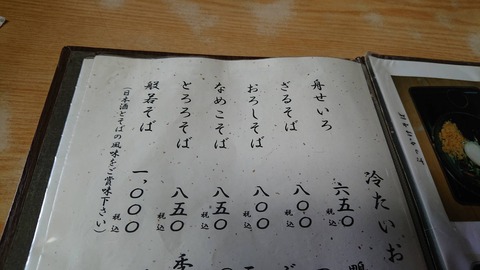 冷たいお
舟せいろ 六五〇 税込
ざるそば 八〇〇 税込
おろしそば 八〇〇 税込
なめこそば 八五〇 税込
とろろそば 八五〇 税込
般若そば 一、〇〇〇 税込
(日本酒とそばの風味をご賞味下さい)
鴨
季